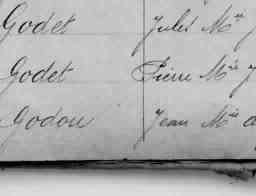 Godet Jules Mie J
Godet Pierre Mie J
Godou Jean Mie d